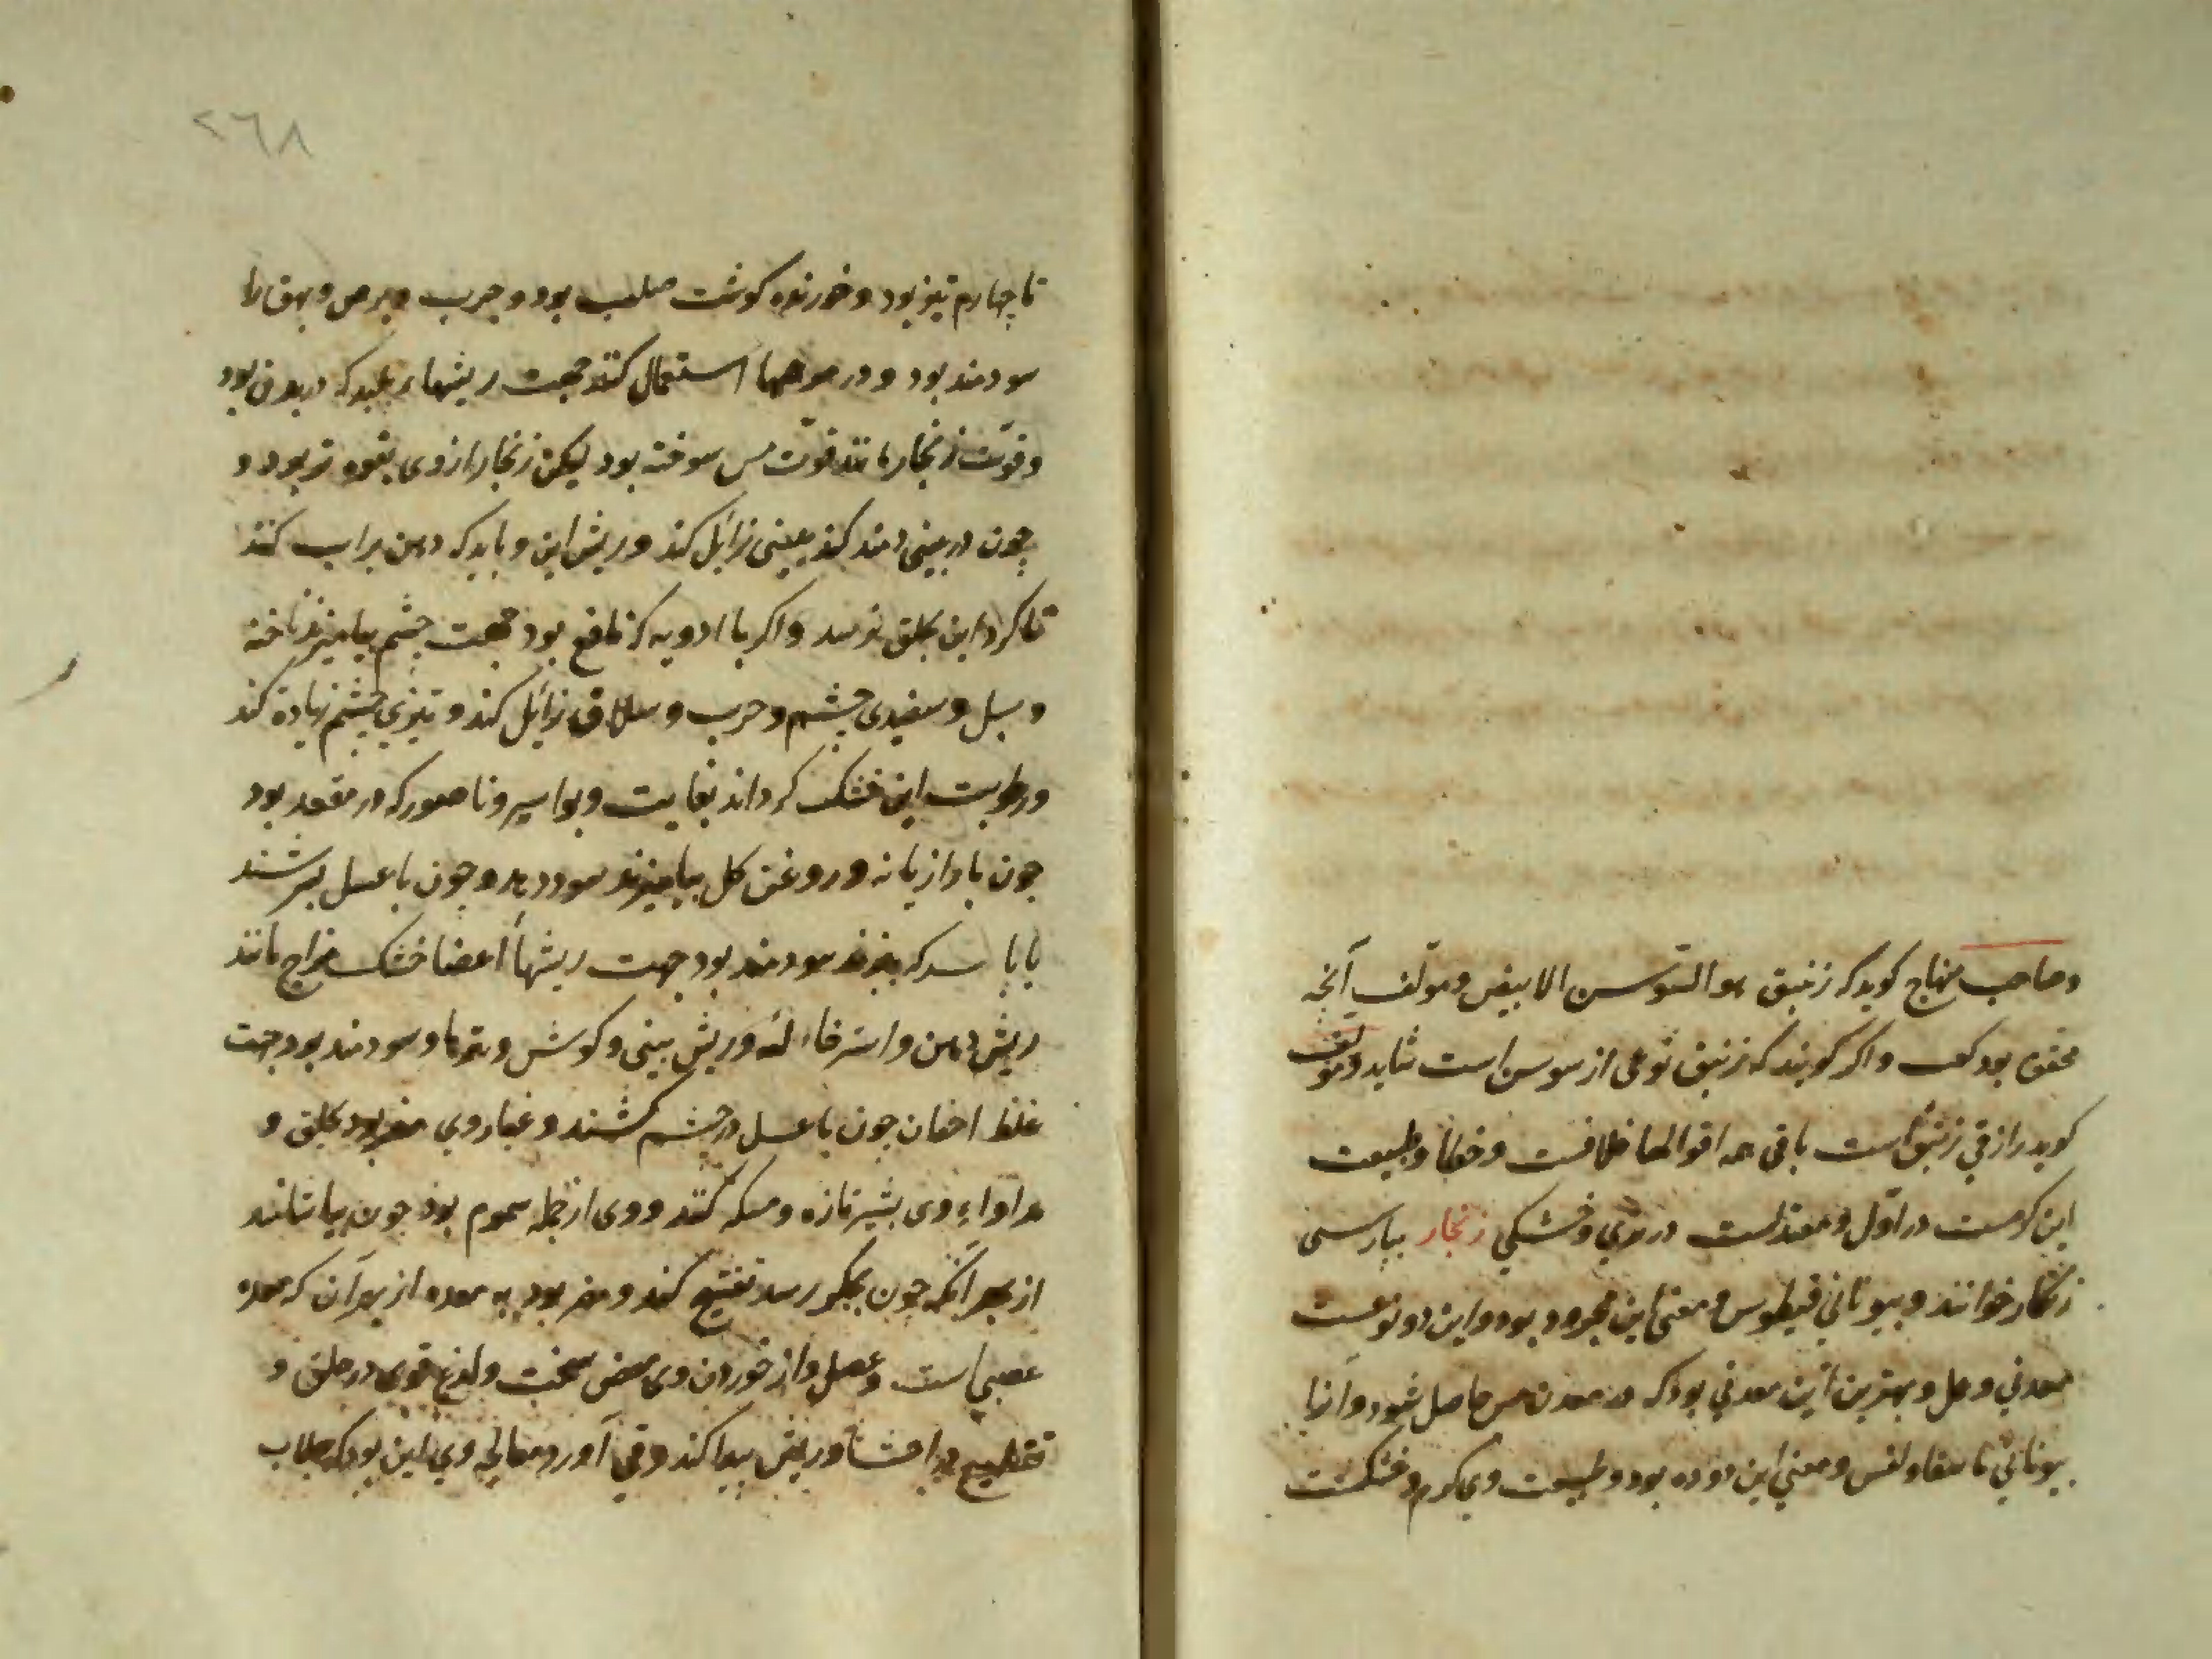 وصاحب منهاج کوید که زنبق هو السوسن الابیض ومؤلف آنچه
محقق بود کف واکر کویند که زنبق نوعی از سوسن است شاید ومؤلف
کوید رازقی زنبق است باقی همه اقوالها خلافست وخطا وطبیعت
این کرمست در اول ومعتدلست در تری وخشکی زنجار بپارسی
زنکار خوانند وبیونانی قیطوس ومعنی این مجرود بود واین دو نوعست
معدنی وعمل وبهترین این معدنی بود که در معدن مس حاصل شود وآنرا
بیونانی ومعنی این دوده بود وطبیعت وی کرم وخشکست
٢٦٨
تا چهارم تیز بود وخورنده کوشت صلب بود وجرب وبرص وبهق را
سودمند بود ودر مرهمها استعمال کنند جهت ریشهاء پلید که در بدن بود
وقوّت زنجار مانند قوّت مس سوخته بود لیکن زنجار از وی بقوه تر بود و
چون در بینی دمند کند بینی زائل کند وریش این وباید که دهن پر آب کنند
تا کرد این بحلق نرسد واکر با ادویه که نافع بود جهت چشم بیامیزند ناخنه
وسبل وسفیدی چشم وجرب وسلاق زائل کند وتیزی چشم زیاده کند
ورطوبت این خشک کرداند بغایت وبواسیر وناصور که در مقعد بود
چون با رازیانه وروغن کل بیامیزند سود دهد وچون با عسل بسرشند
یا با سرکه بپزند سودمند بود جهت ریشها اعضا خشک مزاج مانند
ریش دهن واسترخاء لثه وریش بینی وکوش وورمها وسودمند بود جهت
غلظ اجفان چون با عسل در چشم کشند وغبار وی مضر بود بحلق و
مداواء وی بشیر تازه ومسکه کنند ووی از جمله سموم بود چون بیاشامند
از بهر آنکه چون بجکر رسد تفتیح کند ومضر بود به معده از بهر آن که معده
عصبی است وعضل واز خوردن وی مغص سخت ولذع قوی در حلق و
تقطیع در احشا وریش پیدا کند وقی آورد ومعالجه وی این بود که جلاب